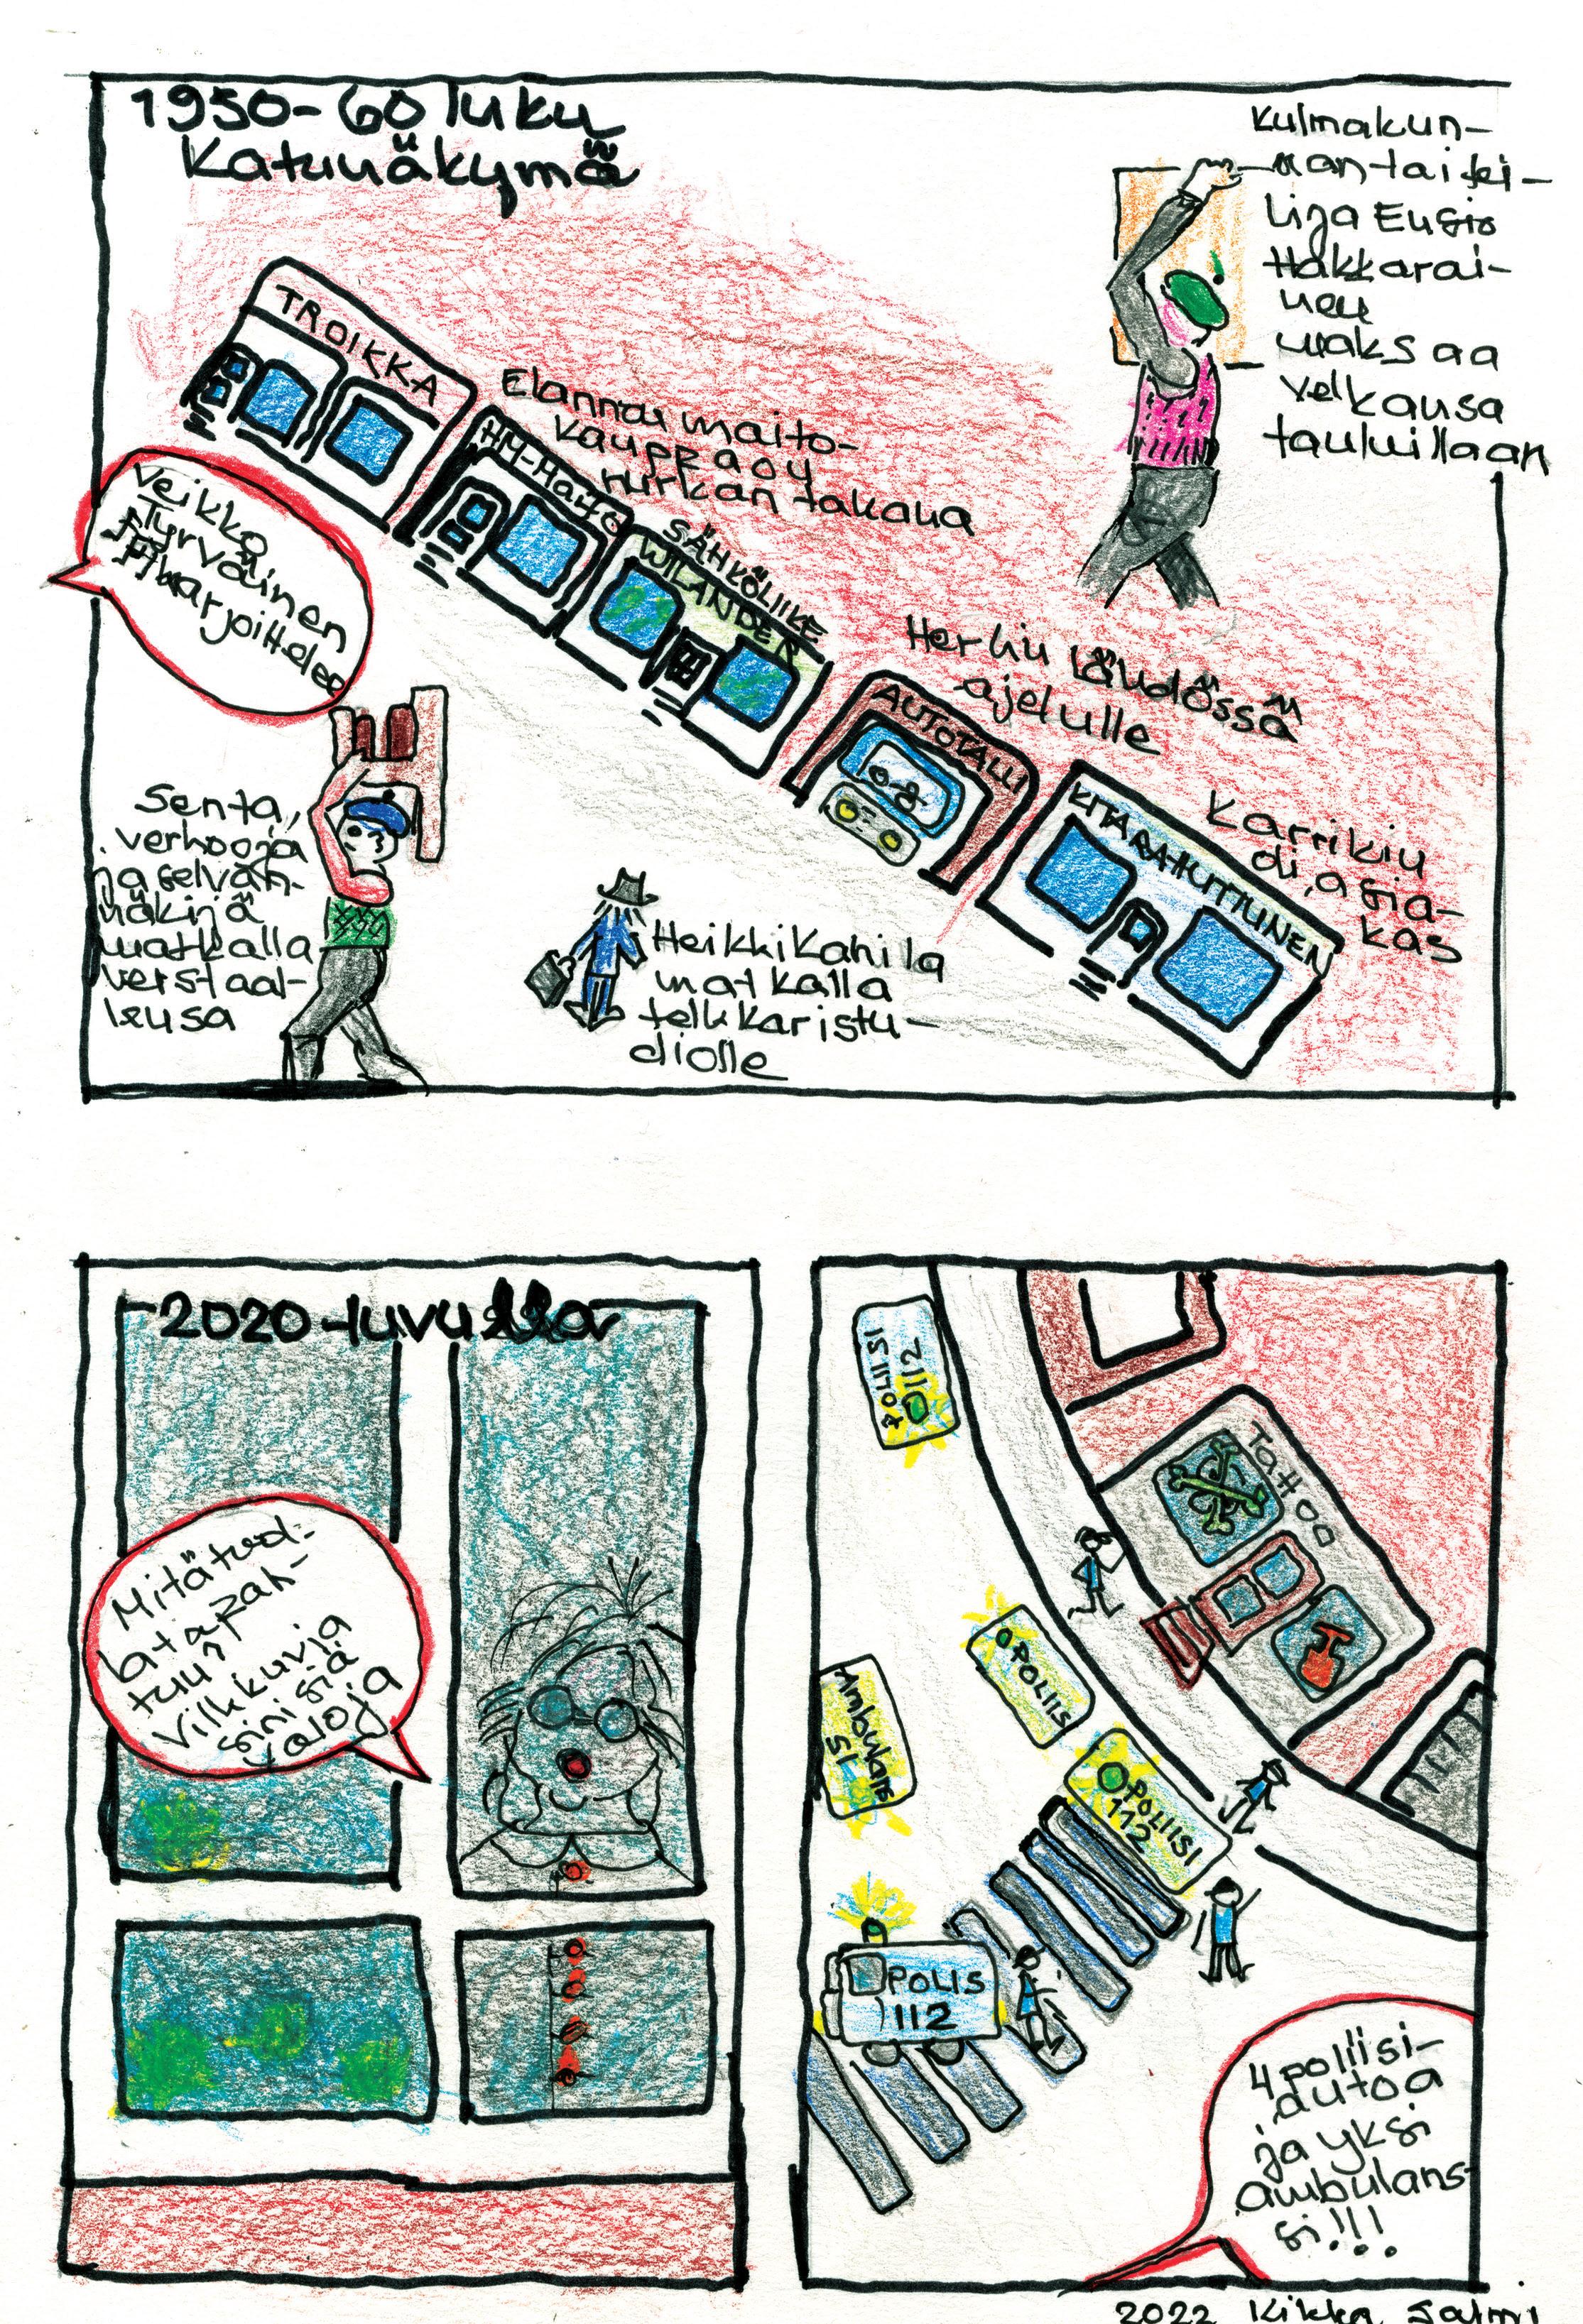 1950-60 luku
Katunäkymä
Kulmakun-
nan taitei-
lija Eusio
Hakkarai-
nen
maksaa
velkansa
tauluillaan
TROIKKA
Elannon maito-
kauppa oy
nurkan takana
HM-Maito
SÄHKÖLIIKE
WILANDER
Veikko
Tyrväinen
harjoittelee
Herhiu lähdössä
ajelulle
AUTOTALLI
KITARAHUTTUNEN
Karrikiu
di, asia-
kas
Senta,
verhooja
ja selvän-
näkijä
matkalla
verstaal-
leusa
Heikki Kahila
matkalla
telkkaristu-
diolle
2020-luvulla
Mitä tuol-
la tapah-
tuu?
Vilkkuvia
sinisiä
valoja
POLIISI
112
Tattoo
POLIIS
Ambulans
SI
POLIISI
112
POLIS
112
4 poliisi-
autoa
ja yksi
ambulans-
si!!!
2022 Kikka Salmi